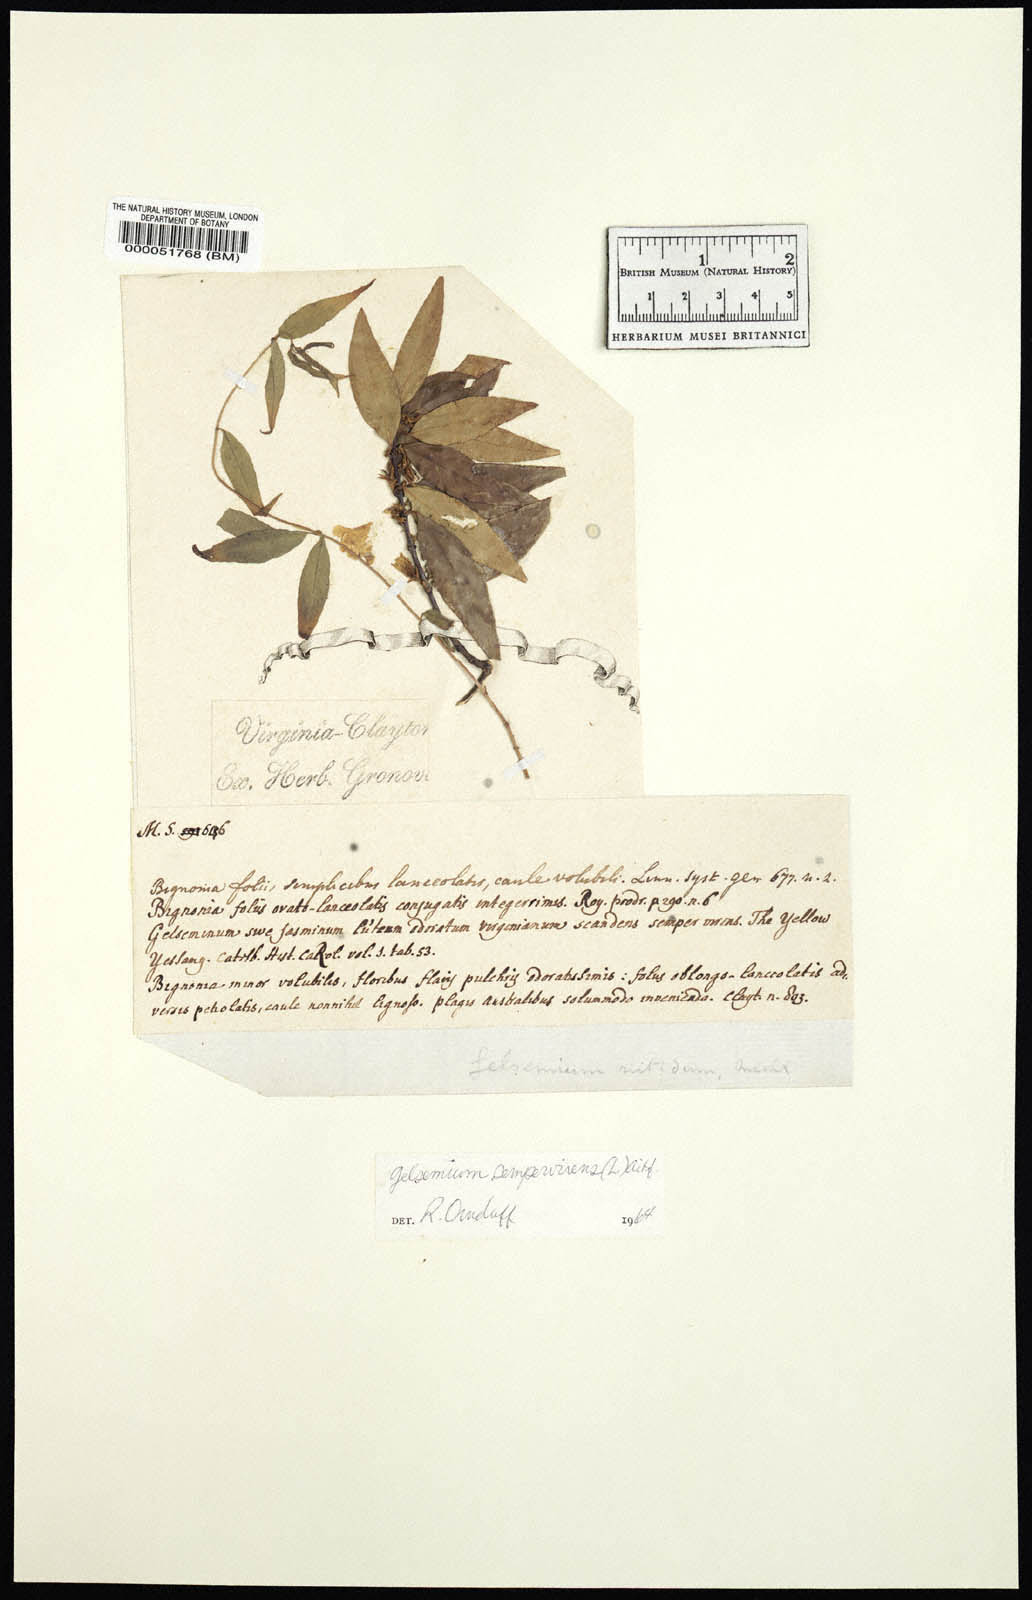 THE NATURAL HISTORY MUSEUM, LONDON
DEPARTMENT OF BOTANY
000051768 (BM)
1 2
BRITISH MUSEUM (NATURAL HISTORY)
1 2 3 4 5
HERBARIUM MUSEI BRITANNICI
Virginia-Clayton
Ex. Herb. Gronov.
M. S. 
Bignonia foliis simplicibus lanceolatis, caule volubili. Linn. syst. gen 677. n. 2.
Bignonia foliis ovato-lanceolatis conjugatis integerrimis. Roy. prodr. p. 290. n. 6
Gelseminum sive Jasminum luteum odoratum virginianum scandens semper virens. The Yellow
Yessang. Catesb. Hist. CaRol. vol. 1. tab. 53.
Bignonia minor volubilis, floribus flavis pulchris odoratissimis: foliis oblongo-lanceolatis ad,
versis petiolatis, caule nonnihil lignoso. plagis australibus solummodo invenienda. Clayt. n.
Gelsemium nitidum, Michx
Gelsemium sempervirens (L) Ait f.
DET. R. Ornduff 1964